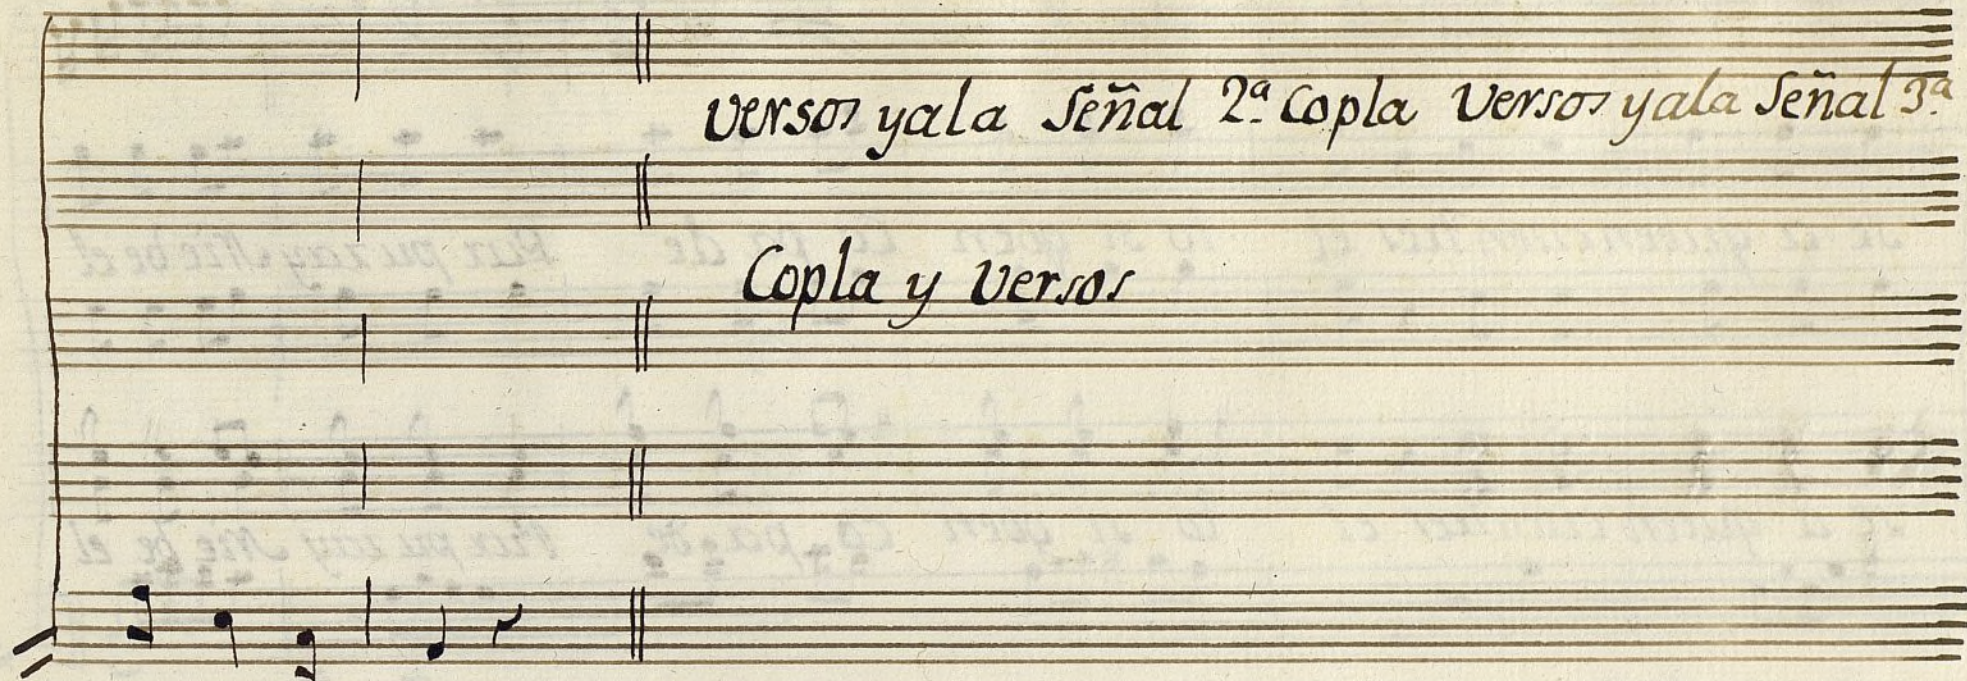 versos yala Señal 2.ª Copla Versos yala Señal 3.ª
Copla y Versos